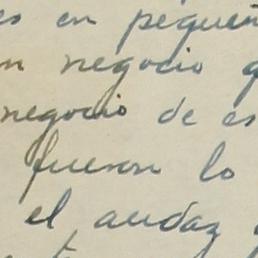 es en pequeñ
n negocio q
negocio de es
fueron lo
el audaz